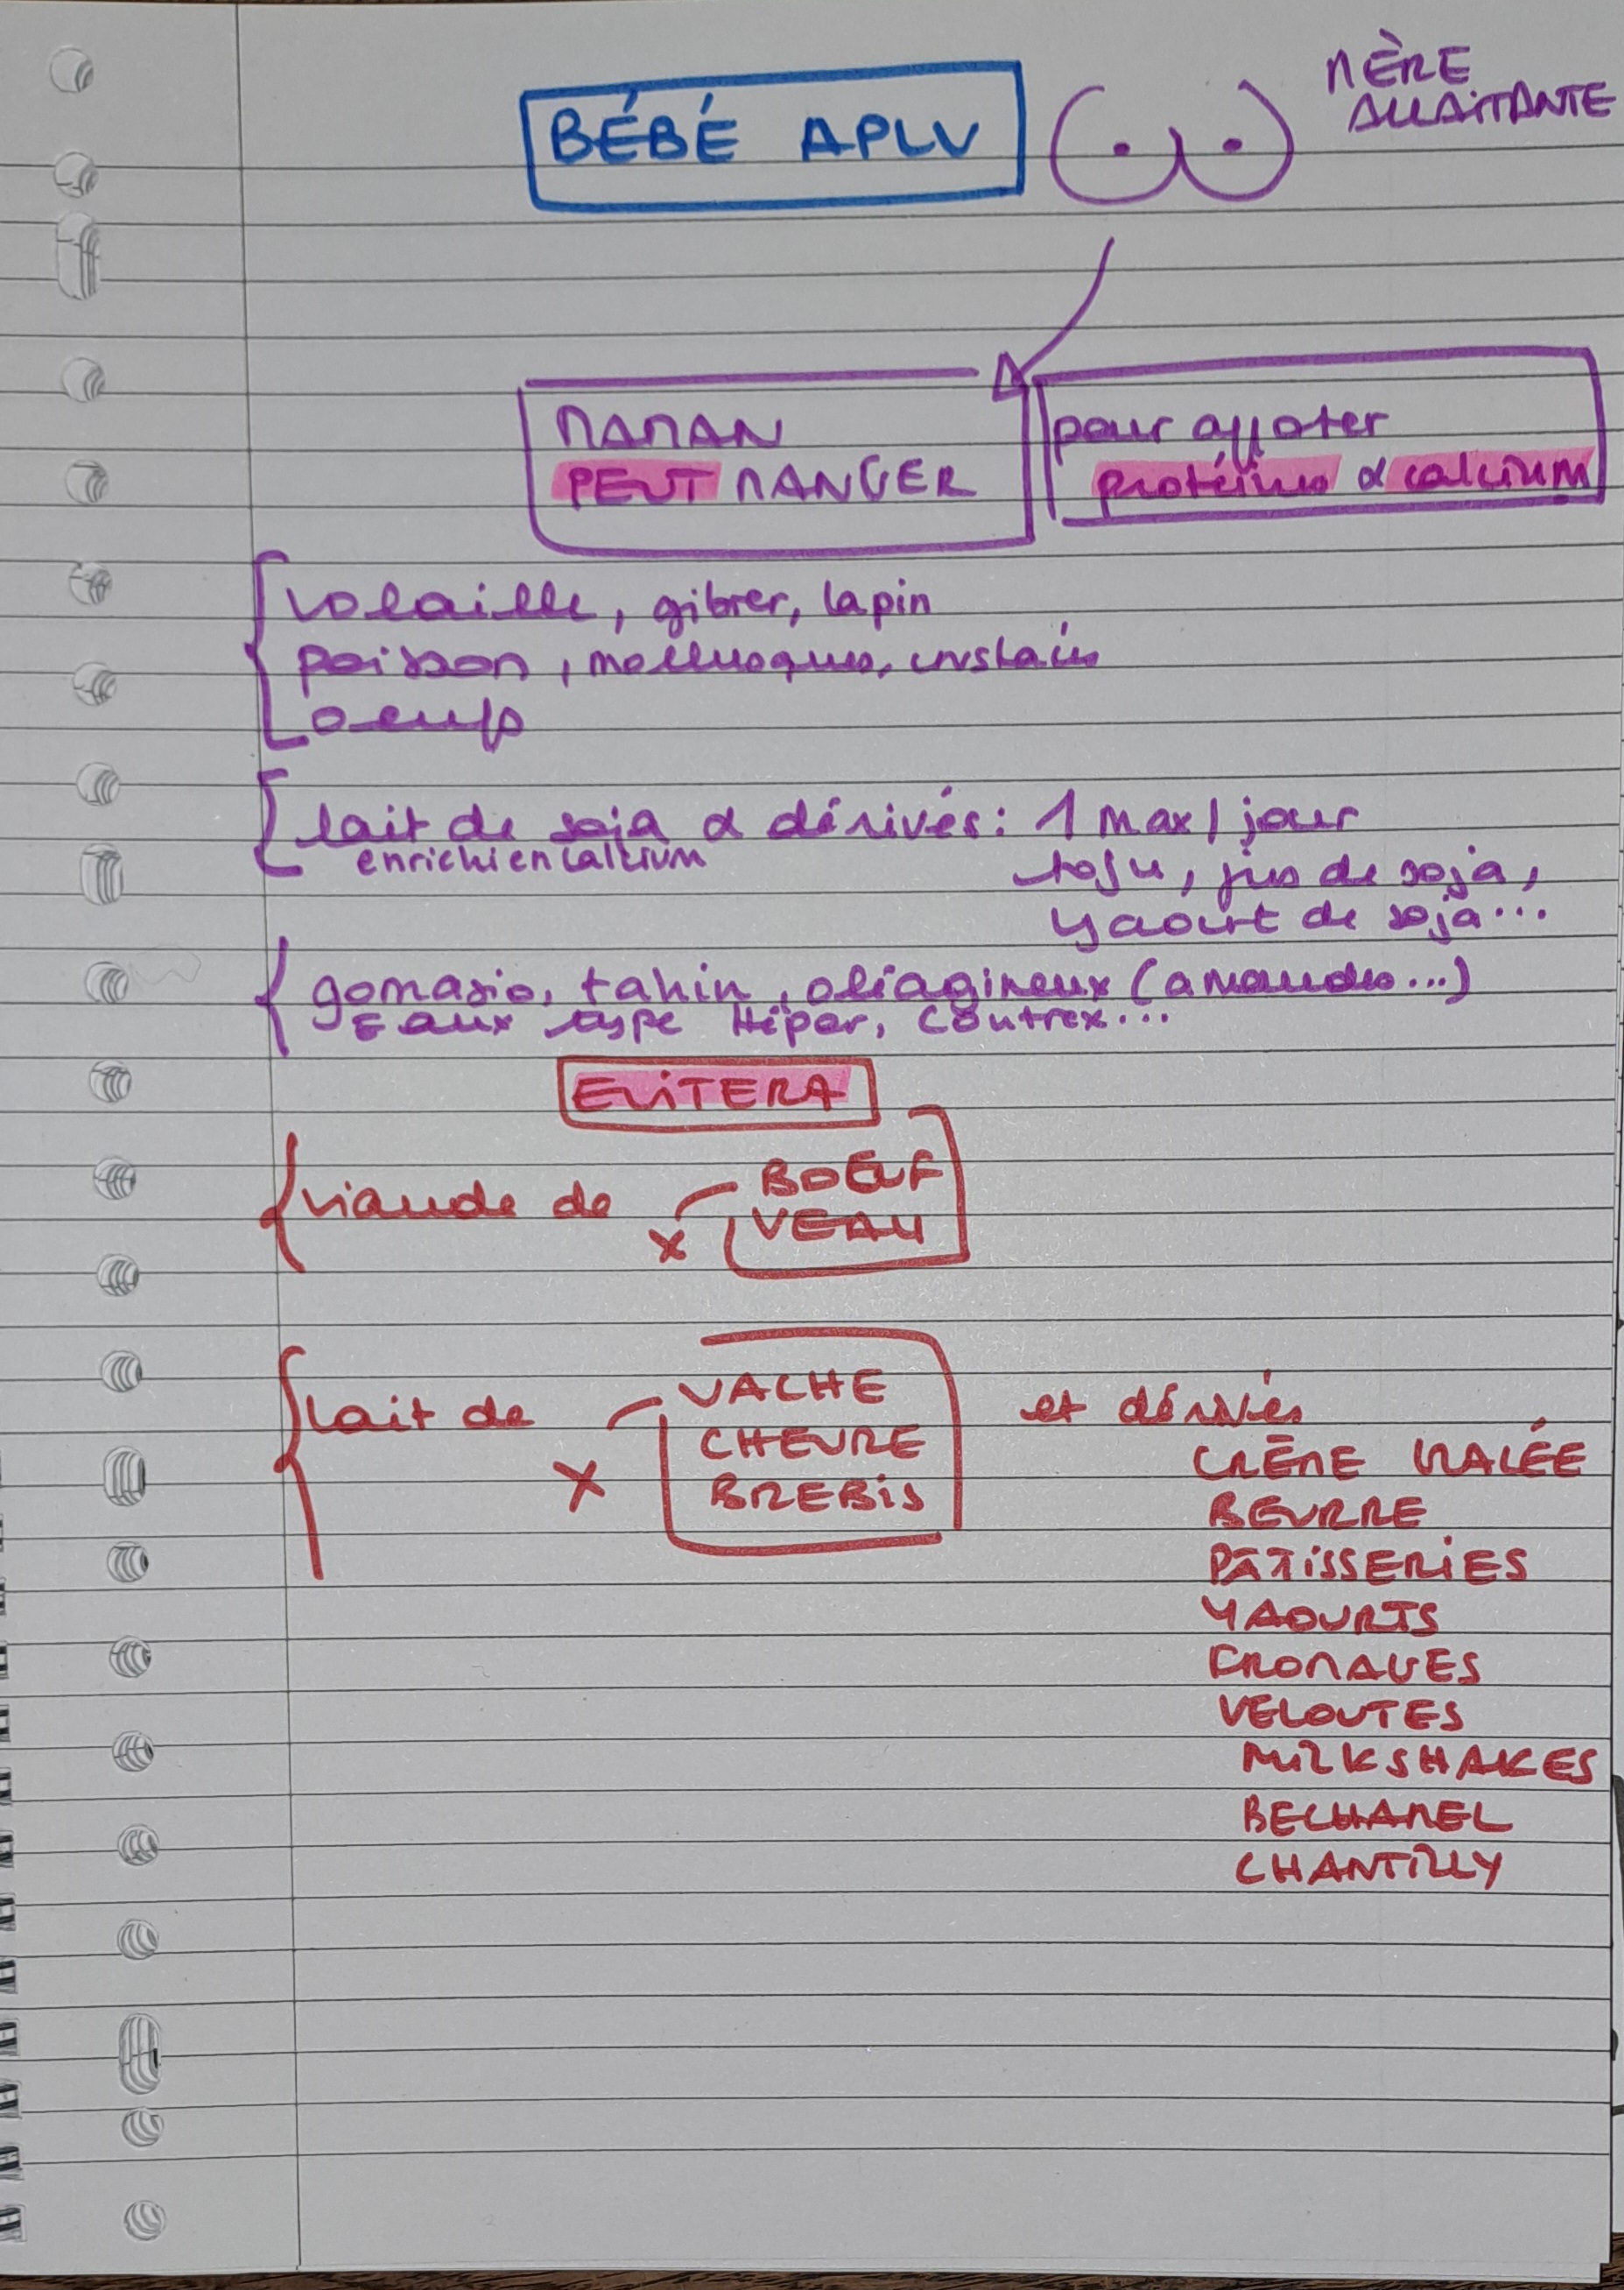 BÉBÉ APLV
MÈRE
ALLAITANTE
MAMAN
PEUT MANGER
pour apporter
protéines & calcium
volaille, gibier, lapin
poisson, mollusques, crustacés
oeufs
lait de soja & dérivés: 1 max/jour
enrichi en calcium
tofu, jus de soja,
yaourt de soja...
gomasio, tahin, oléagineux (amandes...)
Eaux type Hépar, Contrex...
EVITERA
viande de
BOEUF
VEAU
lait de
VACHE
CHEVRE
BREBIS
et dérivés
CRÊME
BEURRE
PATISSERIES
YAOURTS
FROMAGES
VELOUTES
MILKSHAKES
BECHAMEL
CHANTILLY